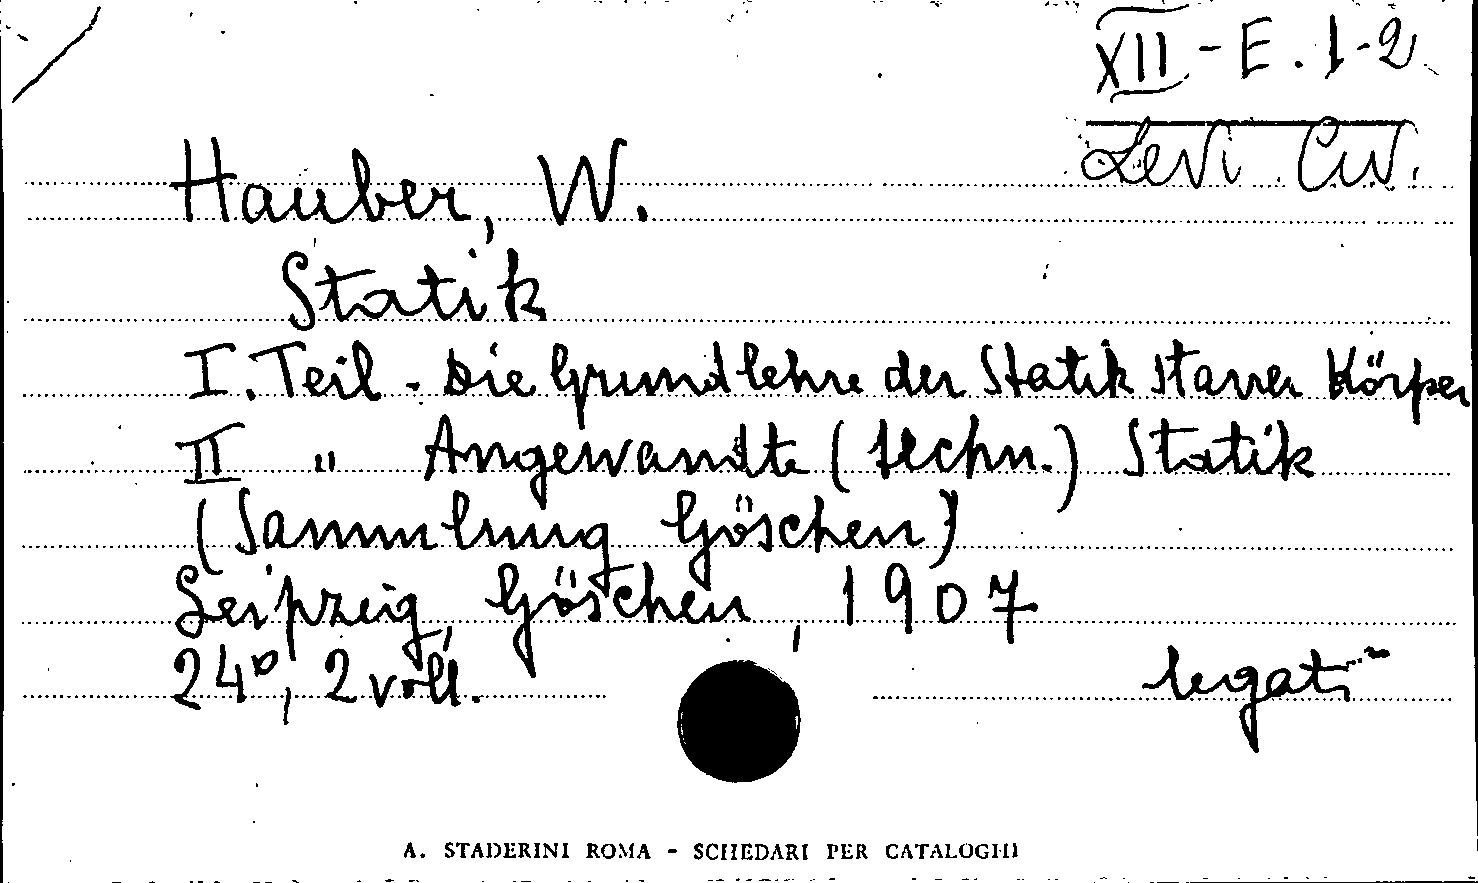 XII - E. 1-2
Levi Civ.
Hauber, W.
Statik
I. Teil - Die Grundlehre der Statik starrer Körper
II " Angewandte (techn.) Statik
(Sammlung Göschen)
Leipzig, Göschen, 1907
24°, 2 voll.
legati
A. STADERINI ROMA - SCHEDARI PER CATALOGHI